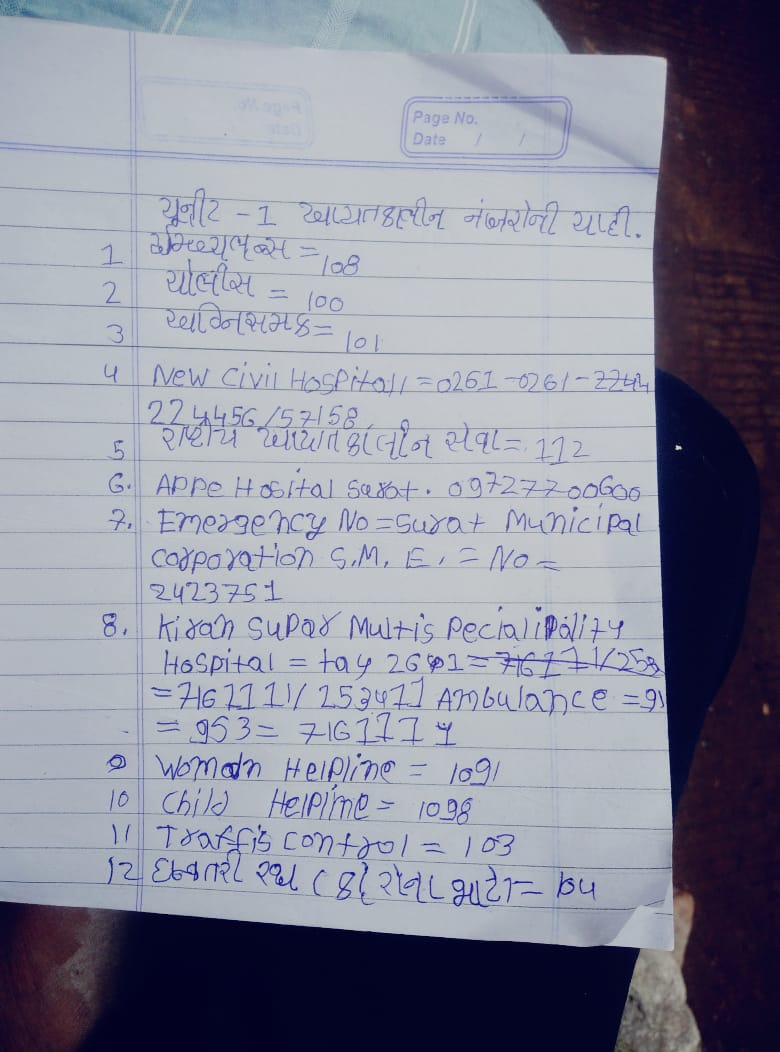 Page No.
Date / /
યૂનીટ - 1 આપાતકાલીન નંબરોની યાદી.
1 એમ્બ્યુલન્સ = 108
2 પોલીસ = 100
3 અગ્નિસમક = 101
4 New Civil Hospitall = 0261 - 0261 - 2244
224456/57158
5 રાષ્ટ્રીય આપાતકાલીન સેવા = 112
6. Appe Hosital Surat. 09727700600
7. Emergency No = Surat Municipal
Corporation S.M. E. = No =
2423751
8. Kiran Supar Multis
Hospital = tay
Ambulance = 91
= 953 =
9 Woman Helpline = 1091
10 Child Helpline = 1098
11 Traffis control = 103
12 ધન્વંતરી રથ ( કોરોના માટે =